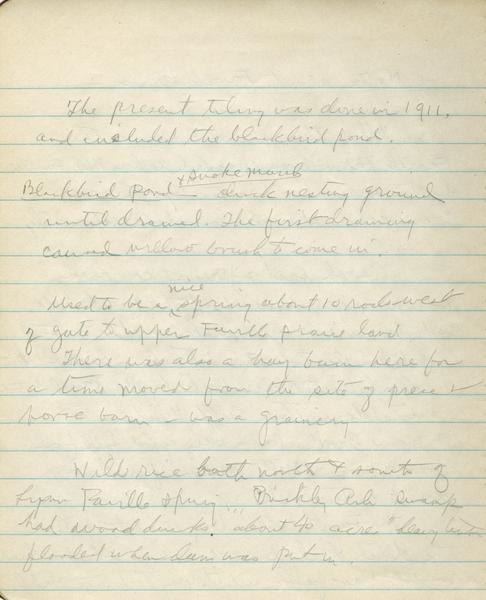 The present tiling was done in 1911.
and included the blackbird pond.
& Snake Marsh
Blackbird Pond - duck nesting ground
until drained. The first draining
caused willow brush to come in.
nice
Used to be a spring about 10 rods west
of gate to upper Faville prairie land
There was also a hay barn here for
a time moved from the site of present
horse barn - was a grainery
Wild rice both north & south of
Lynn Faville spring. Buckley Ash Swamp
had wood ducks "about 40 acres"
flooded when dam was put in.